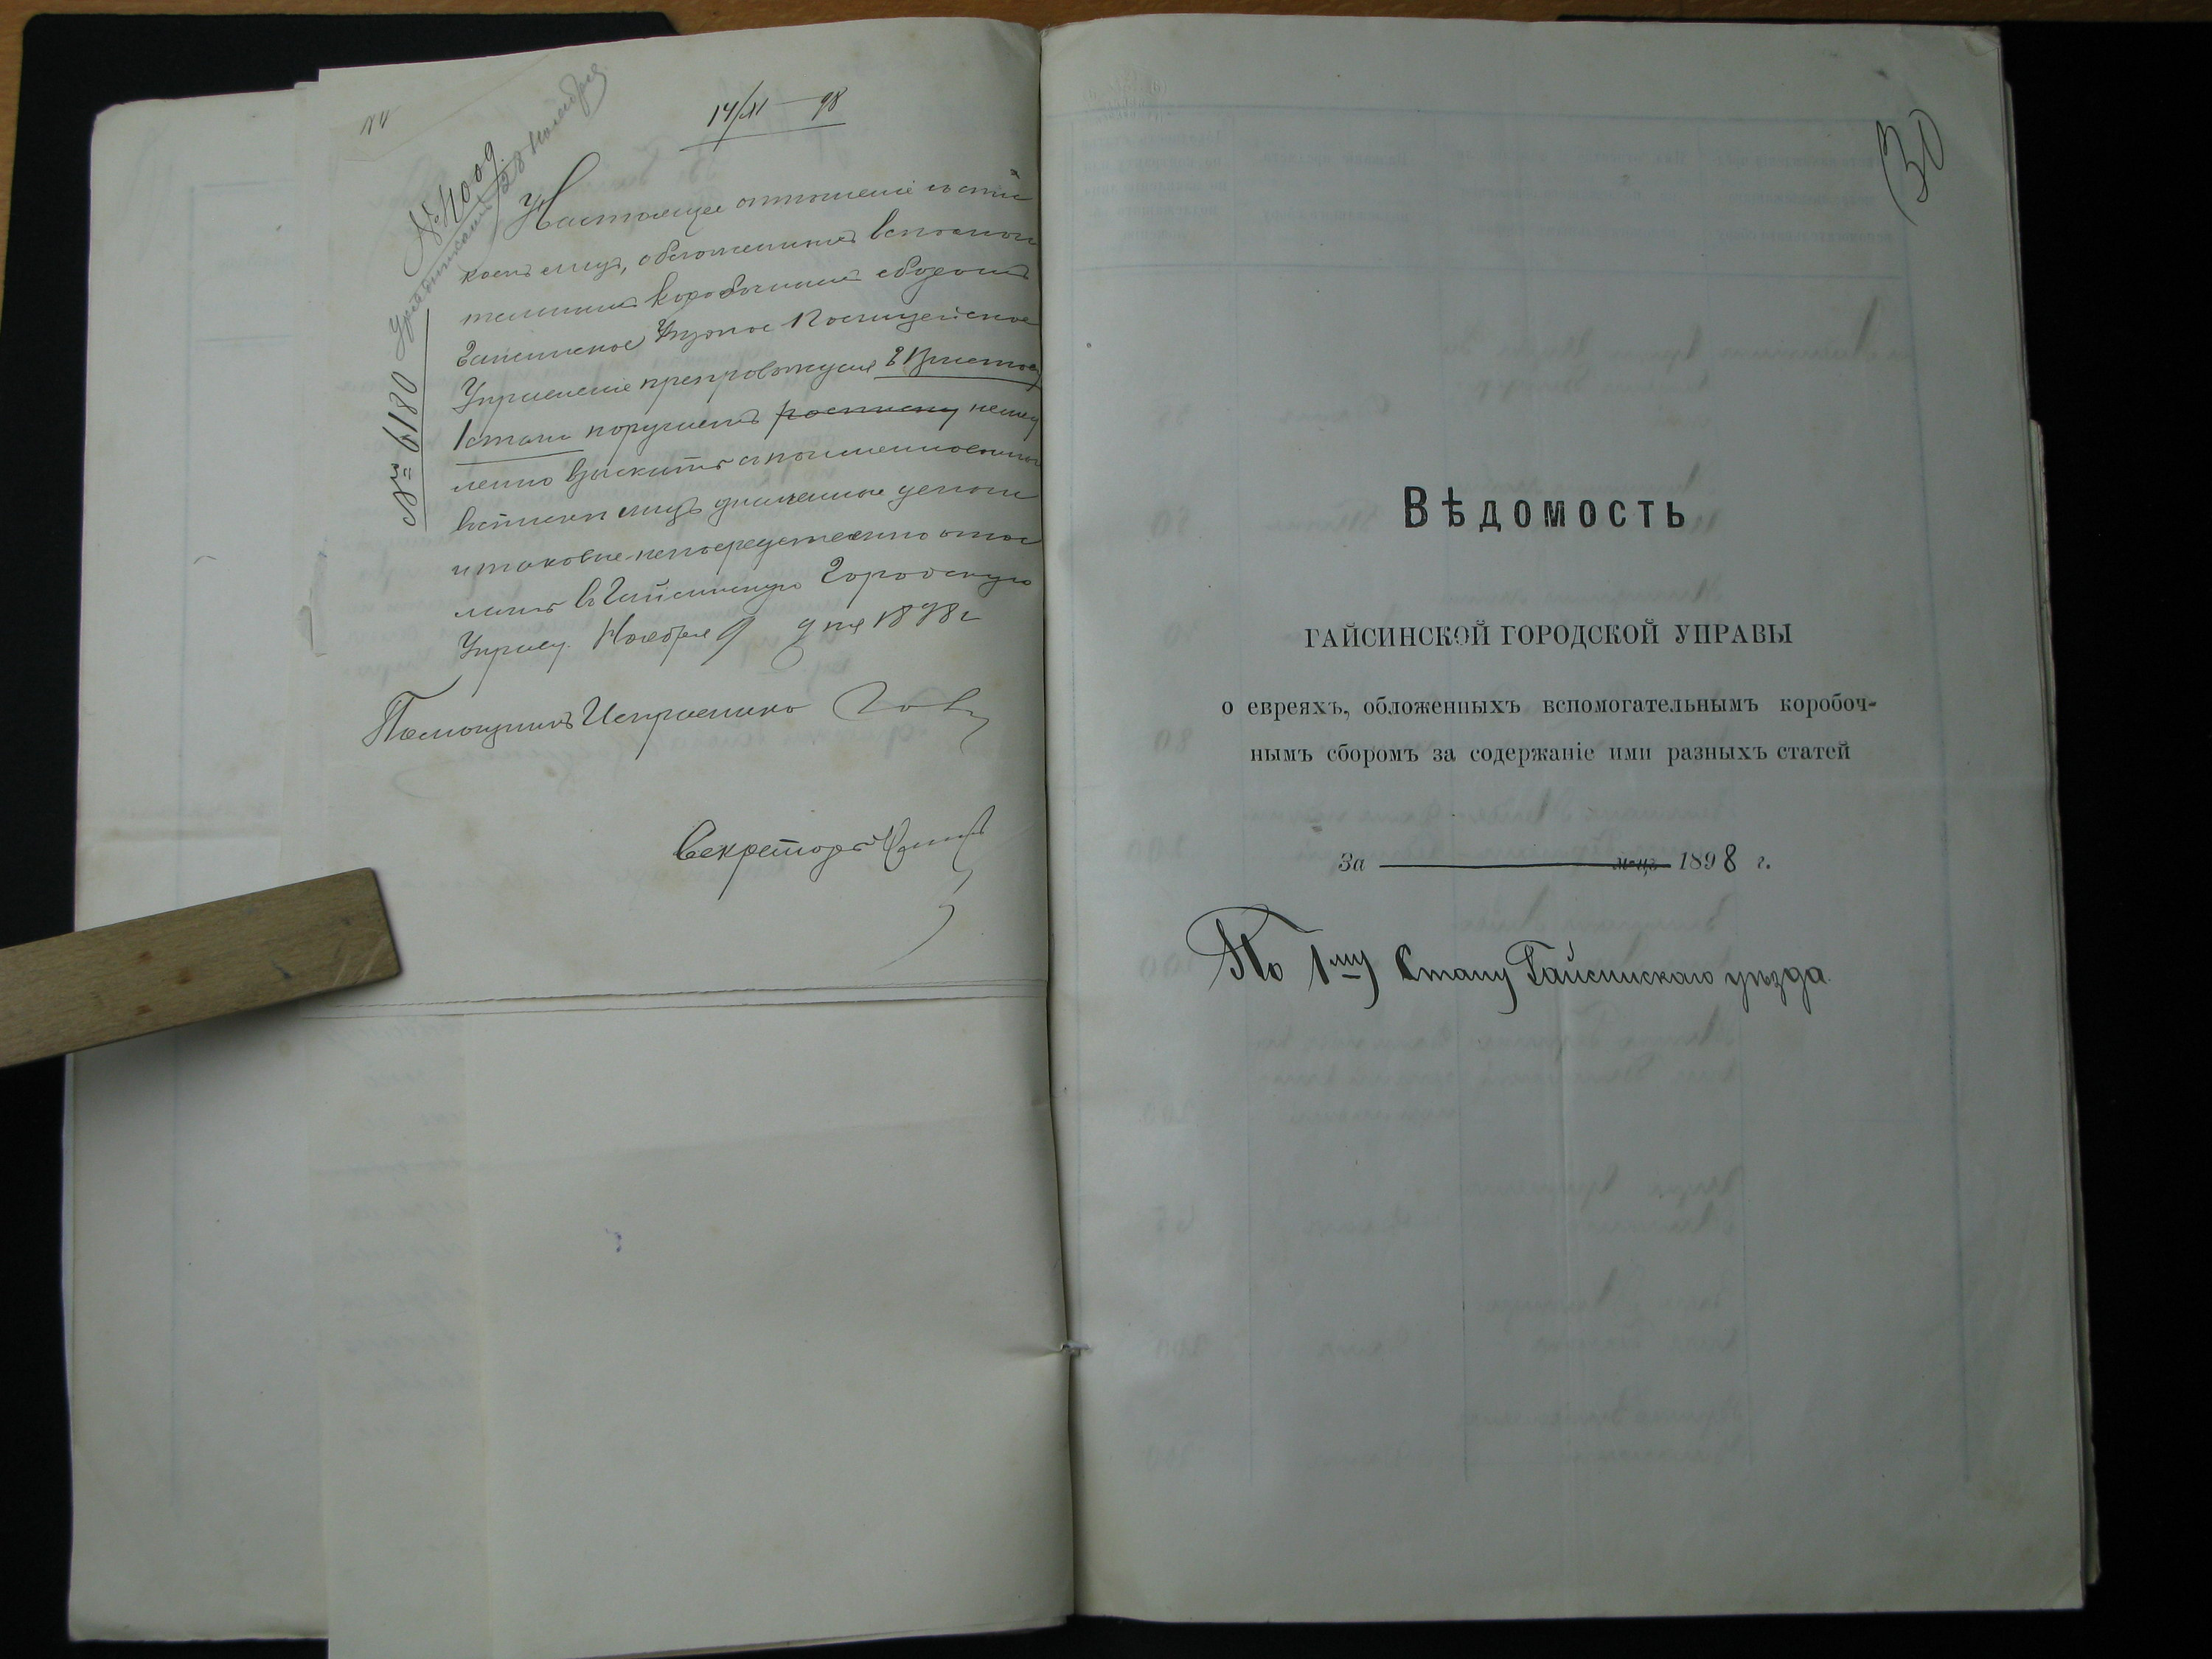 14/XI 98
№ 4009
28 Ноября
№ 6180
Настоящее отношеніе со спис
комъ лицъ, обложенныхъ вспомога
тельнымъ коробочнымъ сборомъ
Гайсинское Уѣздное Полицейское
Управленіе препровождая Г Приставу
1 стана поручаетъ росписку немед
ленно взыскать съ поименованныхъ
въ спискѣ лицъ деньги
и таковые непосредственно отос
лать въ Гайсинскую Городскую
Управу. Ноября 9 дня 1898 г
Помощникъ Исправника
Секретарь
30
Вѣдомость
ГАЙСИНСКОЙ ГОРОДСКОЙ УПРАВЫ
о евреяхъ, обложенныхъ вспомогательнымъ коробоч-
нымъ сборомъ за содержаніе ими разныхъ статей
За м-цъ 1898 г.
По 1му Стану Гайсинскаго уѣзда.